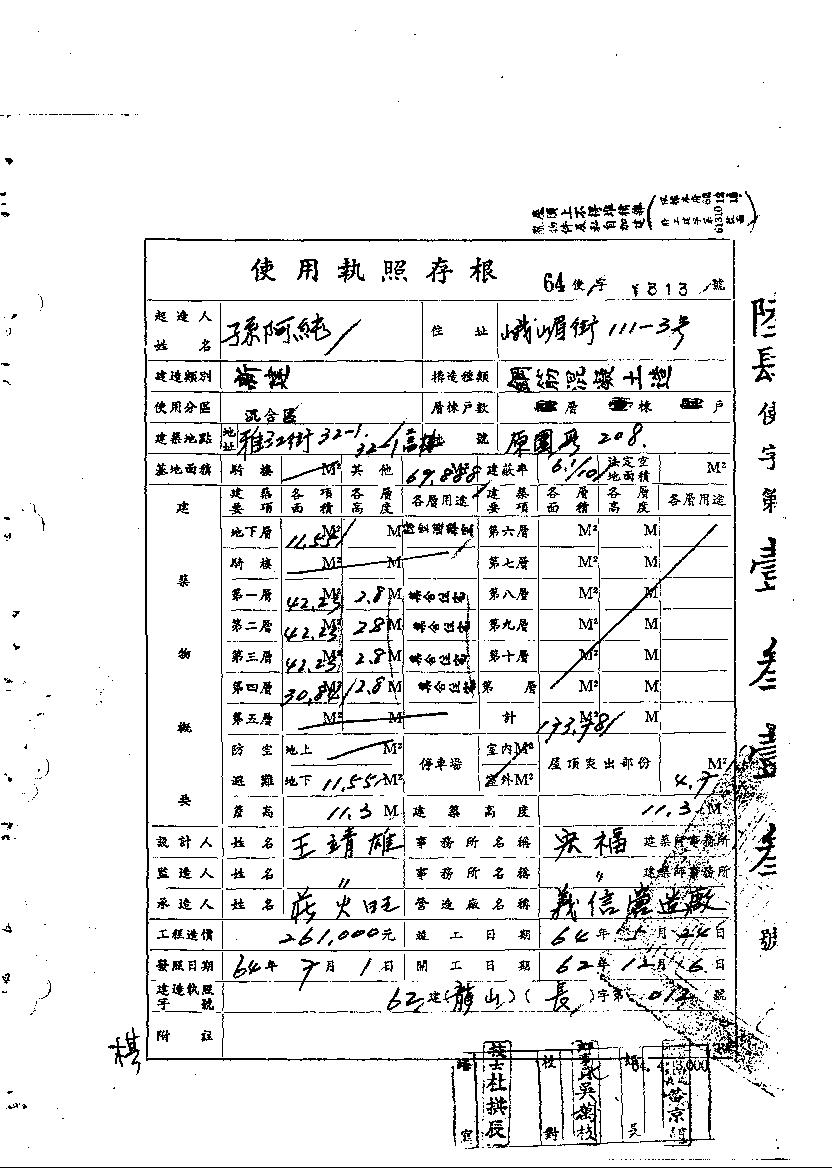 屋頂上不得堆積雜
物件及私自加建
使用執照存根 64 使字 1313 號
起造人姓名 孫阿純 住址 峨嵋街 111-3号
建造類別 新建 構造種類 鋼筋混凝土造
使用分區 混合區 層棟戶數 層 棟 戶
建築地點 地址 雅江街 32-1. 號 原圖另 208.
基地面積 騎樓 M² 其他 69.888 建蔽率 6.1/10 法定空地面積 M²
建築要項 各項面積 各層高度 各層用途 建築要項 各層面積 各層高度 各層用途
建築物概要
地下層 11.55 M² M 第六層 M² M
騎樓 M² M 第七層 M² M
第一層 42.23 M² 2.8 M 集合住宅 第八層 M² M
第二層 42.23 M² 2.8 M 集合住宅 第九層 M² M
第三層 42.23 M² 2.8 M 集合住宅 第十層 M² M
第四層 30.84 M² 2.8 M 集合住宅 第 層 M² M
第五層 M² M 計 M² M
防空 地上 M² 停車場 室內 M² 屋頂突出部份 M²
避難 地下 11.55 M² 室外 M² 4.7
簷高 11.3 M 建築高度 11.3 M
設計人 姓名 王靖雄 事務所名稱 宋福 建築師事務所
監造人 姓名 〃 事務所名稱 〃 建築師事務所
承造人 姓名 莊火旺 營造廠名稱 義信營造廠
工程造價 261,000元 竣工日期 64年 月24日
發照日期 64年 7月 1日 開工日期 62年 12月 6日
建造執照字號 62 建(龍山)(長)字第 012 號
附註
棋
技士杜拱長
校對
吳萬枝
黃京
陸長使字第壹叁壹叁號